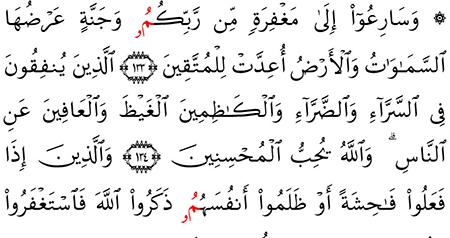 ۞ وَسَارِعُوٓا۟ إِلَىٰ مَغْفِرَةٍ مِّن رَّبِّكُمُۥ وَجَنَّةٍ عَرْضُهَا
ٱلسَّمَـٰوَٰتُ وَٱلْأَرْضُ أُعِدَّتْ لِلْمُتَّقِينَ ١٣٣ ٱلَّذِينَ يُنفِقُونَ
فِى ٱلسَّرَّآءِ وَٱلضَّرَّآءِ وَٱلْكَـٰظِمِينَ ٱلْغَيْظَ وَٱلْعَافِينَ عَنِ
ٱلنَّاسِ ۗ وَٱللَّهُ يُحِبُّ ٱلْمُحْسِنِينَ ١٣٤ وَٱلَّذِينَ إِذَا
فَعَلُوا۟ فَـٰحِشَةً أَوْ ظَلَمُوٓا۟ أَنفُسَهُمُۥ ذَكَرُوا۟ ٱللَّهَ فَٱسْتَغْفَرُوا۟